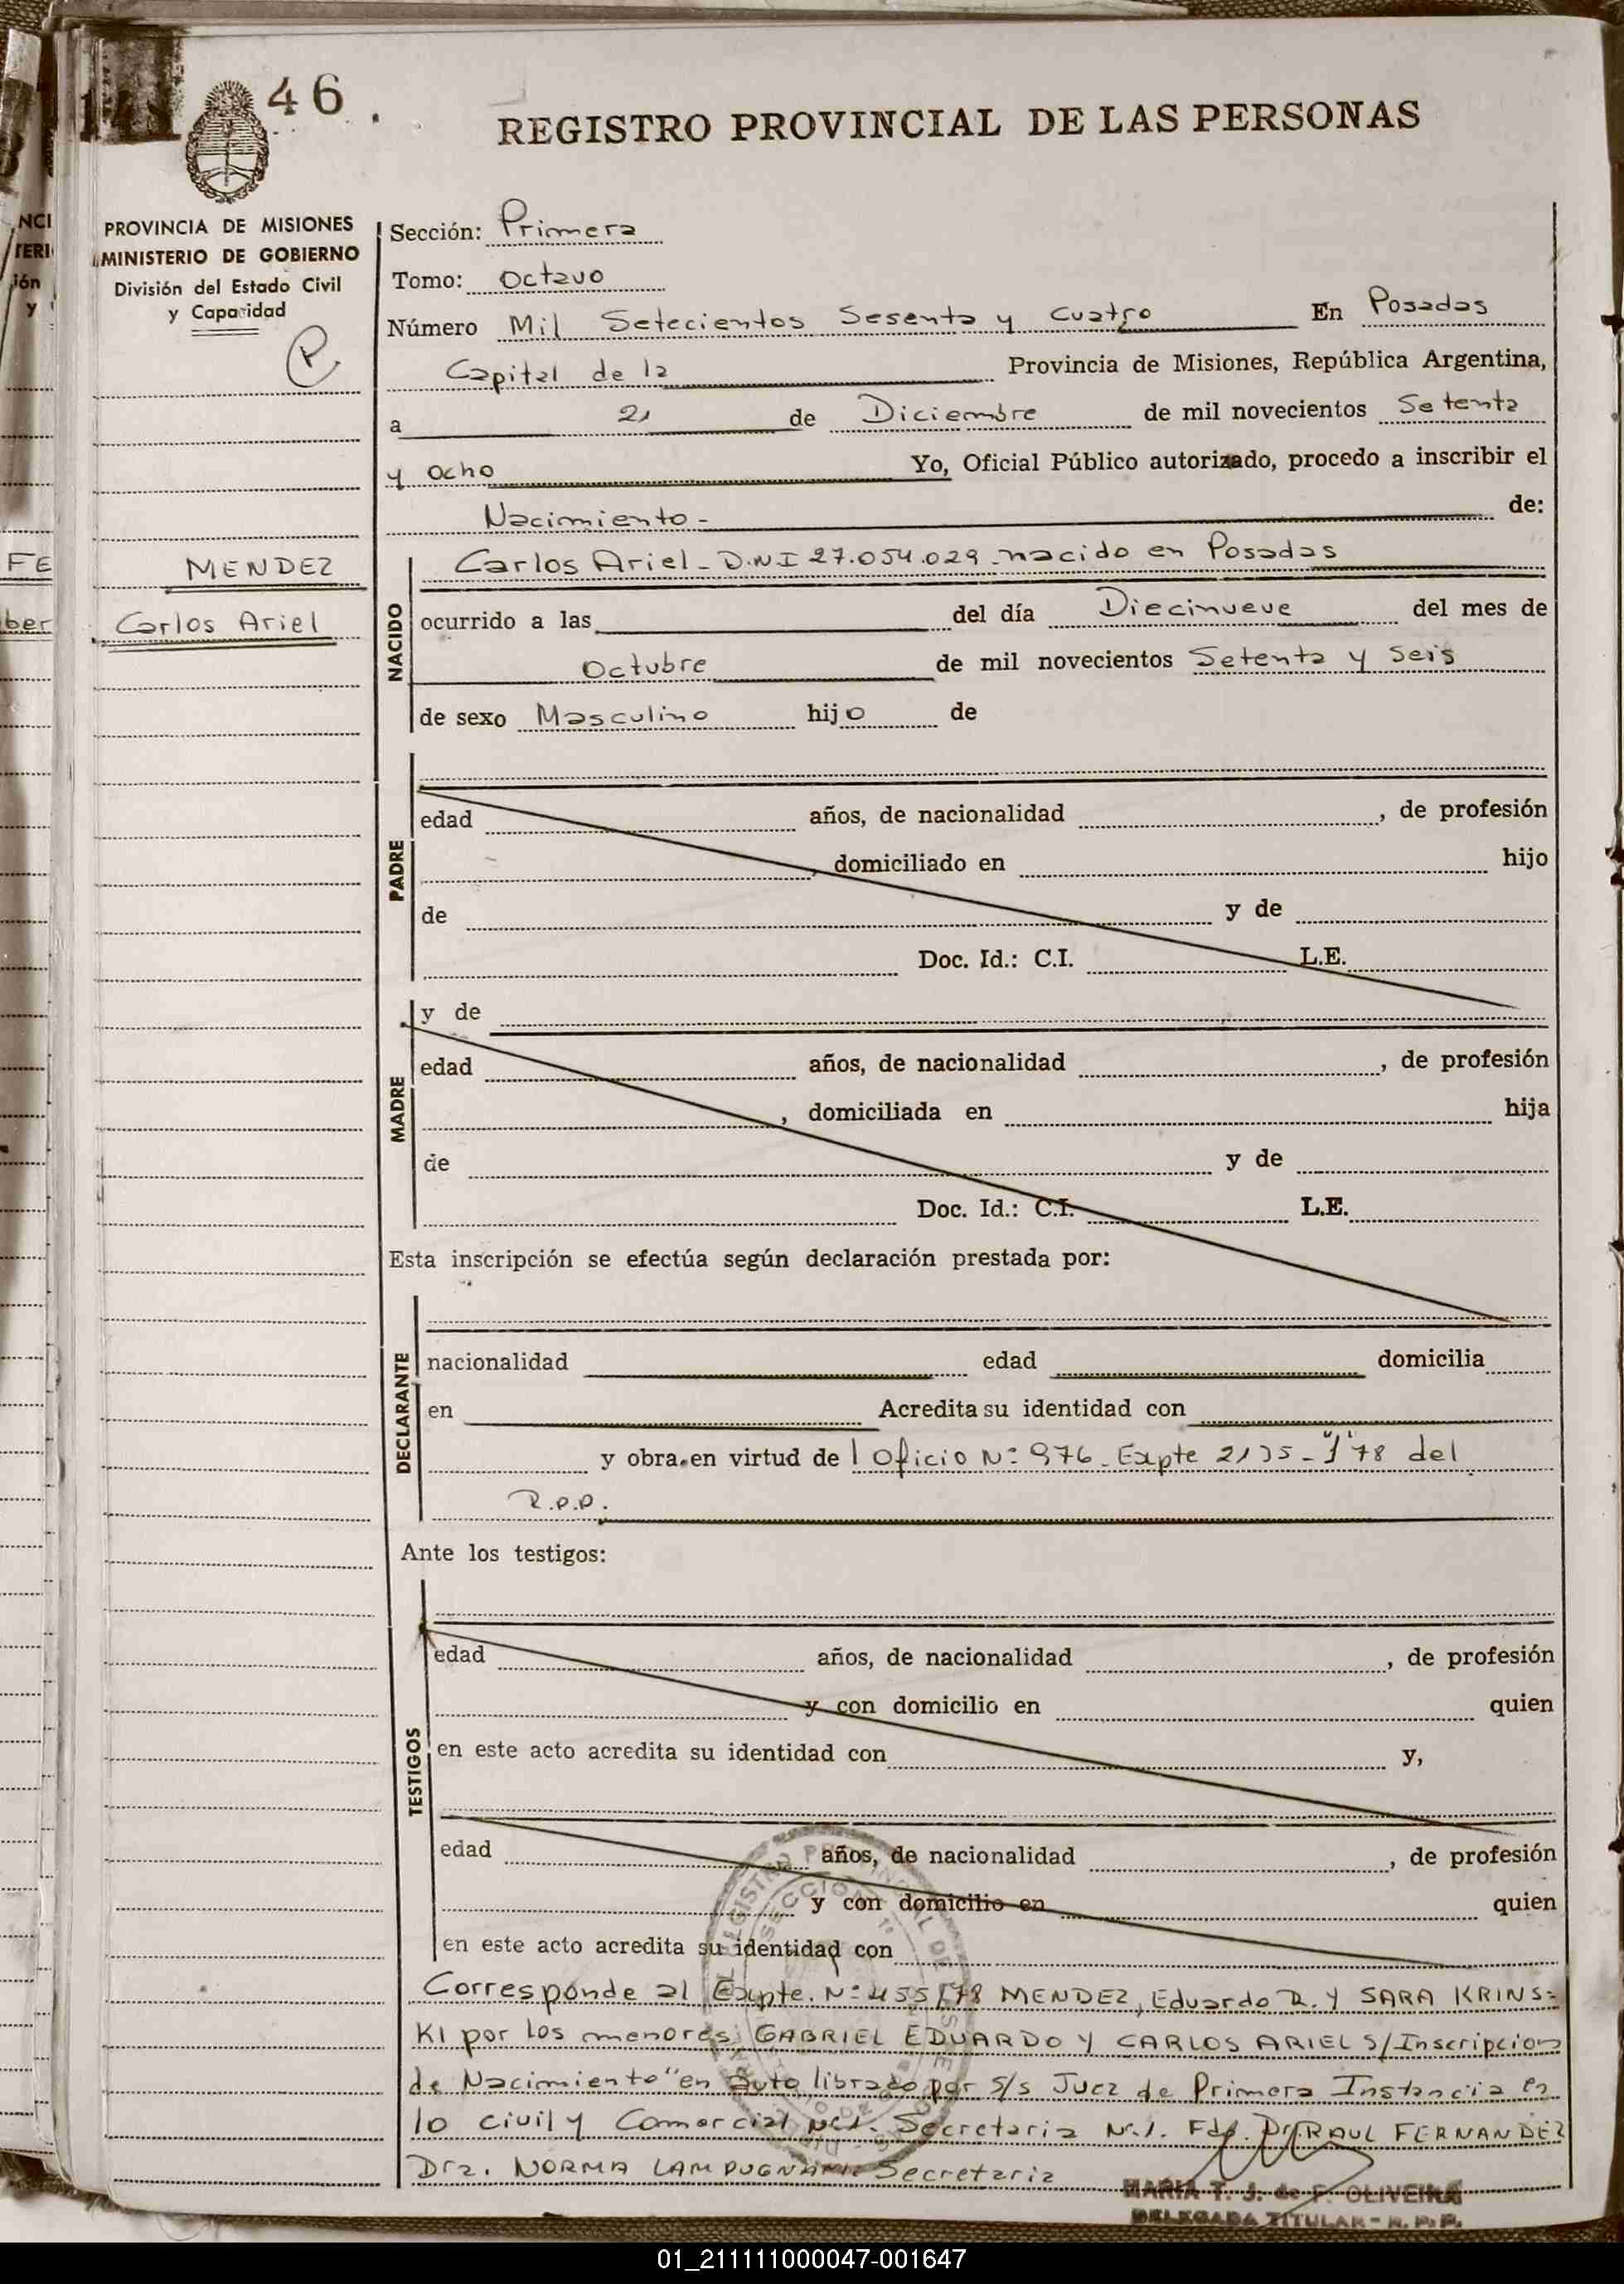 46.
REGISTRO PROVINCIAL DE LAS PERSONAS
PROVINCIA DE MISIONES
MINISTERIO DE GOBIERNO
División del Estado Civil
y Capacidad
P
MENDEZ
Carlos Ariel
Sección: Primera
Tomo: Octavo
Número Mil Setecientos Sesenta y Cuatro En Posadas
Capital de la Provincia de Misiones, República Argentina,
a 21 de Diciembre de mil novecientos Setenta
y ocho Yo, Oficial Público autorizado, procedo a inscribir el
Nacimiento - de:
NACIDO
Carlos Ariel - D.N.I 27.054.029 - nacido en Posadas
ocurrido a las del día Diecinueve del mes de
Octubre de mil novecientos Setenta y Seis
de sexo Masculino hijo de
PADRE
edad años, de nacionalidad , de profesión
, domiciliado en hijo
de y de
Doc. Id.: C.I. L.E.
MADRE
y de
edad años, de nacionalidad , de profesión
, domiciliada en hija
de y de
Doc. Id.: C.I. L.E.
Esta inscripción se efectúa según declaración prestada por:
DECLARANTE
nacionalidad edad domicilia
en Acredita su identidad con
y obra en virtud de l Oficio Nº 976 - Expte 2135 - "J" 78 del
R.P.P.
Ante los testigos:
TESTIGOS
edad años, de nacionalidad , de profesión
y con domicilio en quien
en este acto acredita su identidad con y,
edad años, de nacionalidad , de profesión
y con domicilio en quien
en este acto acredita su identidad con
Corresponde al Expte. Nº 455/78 MENDEZ, Eduardo R. Y SARA KRINS=
KI por los menores: GABRIEL EDUARDO Y CARLOS ARIEL S/Inscripcion
de Nacimiento" en auto librado por S/s Juez de Primera Instancia en
lo civil y Comercial Nº1. Secretaria Nº1. Fdo. Dr. RAUL FERNANDEZ
Dra. NORMA LAMPUGNANI Secretaria
MARIA T. J. de F. OLIVEIRA
DELEGADA TITULAR - R. P. P.
01_211111000047-001647